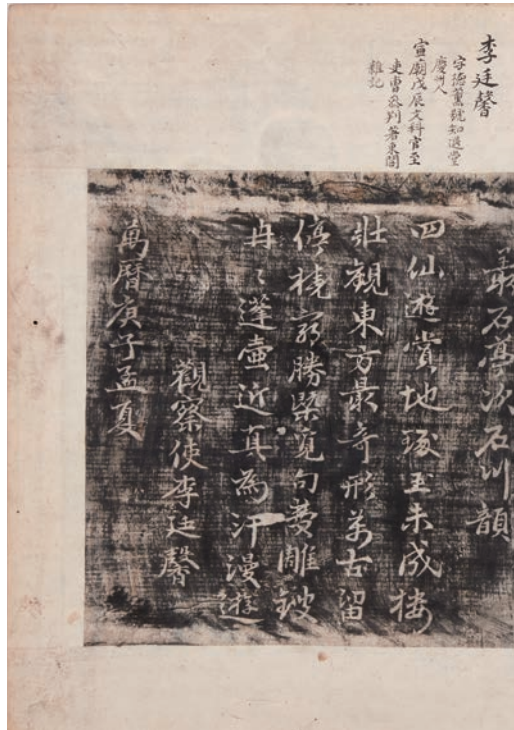 李廷馨
字德薰號知退堂
慶州人
宣廟戊辰文科官至
吏曹參判著東閣
雜記
叢石亭次石川韻
四仙遊賞地琢玉未成樓
壯觀東方最奇形萬古留
停橈窮勝槩覓句費雕鎪
冉〻蓬壺近真為汗漫遊
觀察使李廷馨
萬曆庚子孟夏